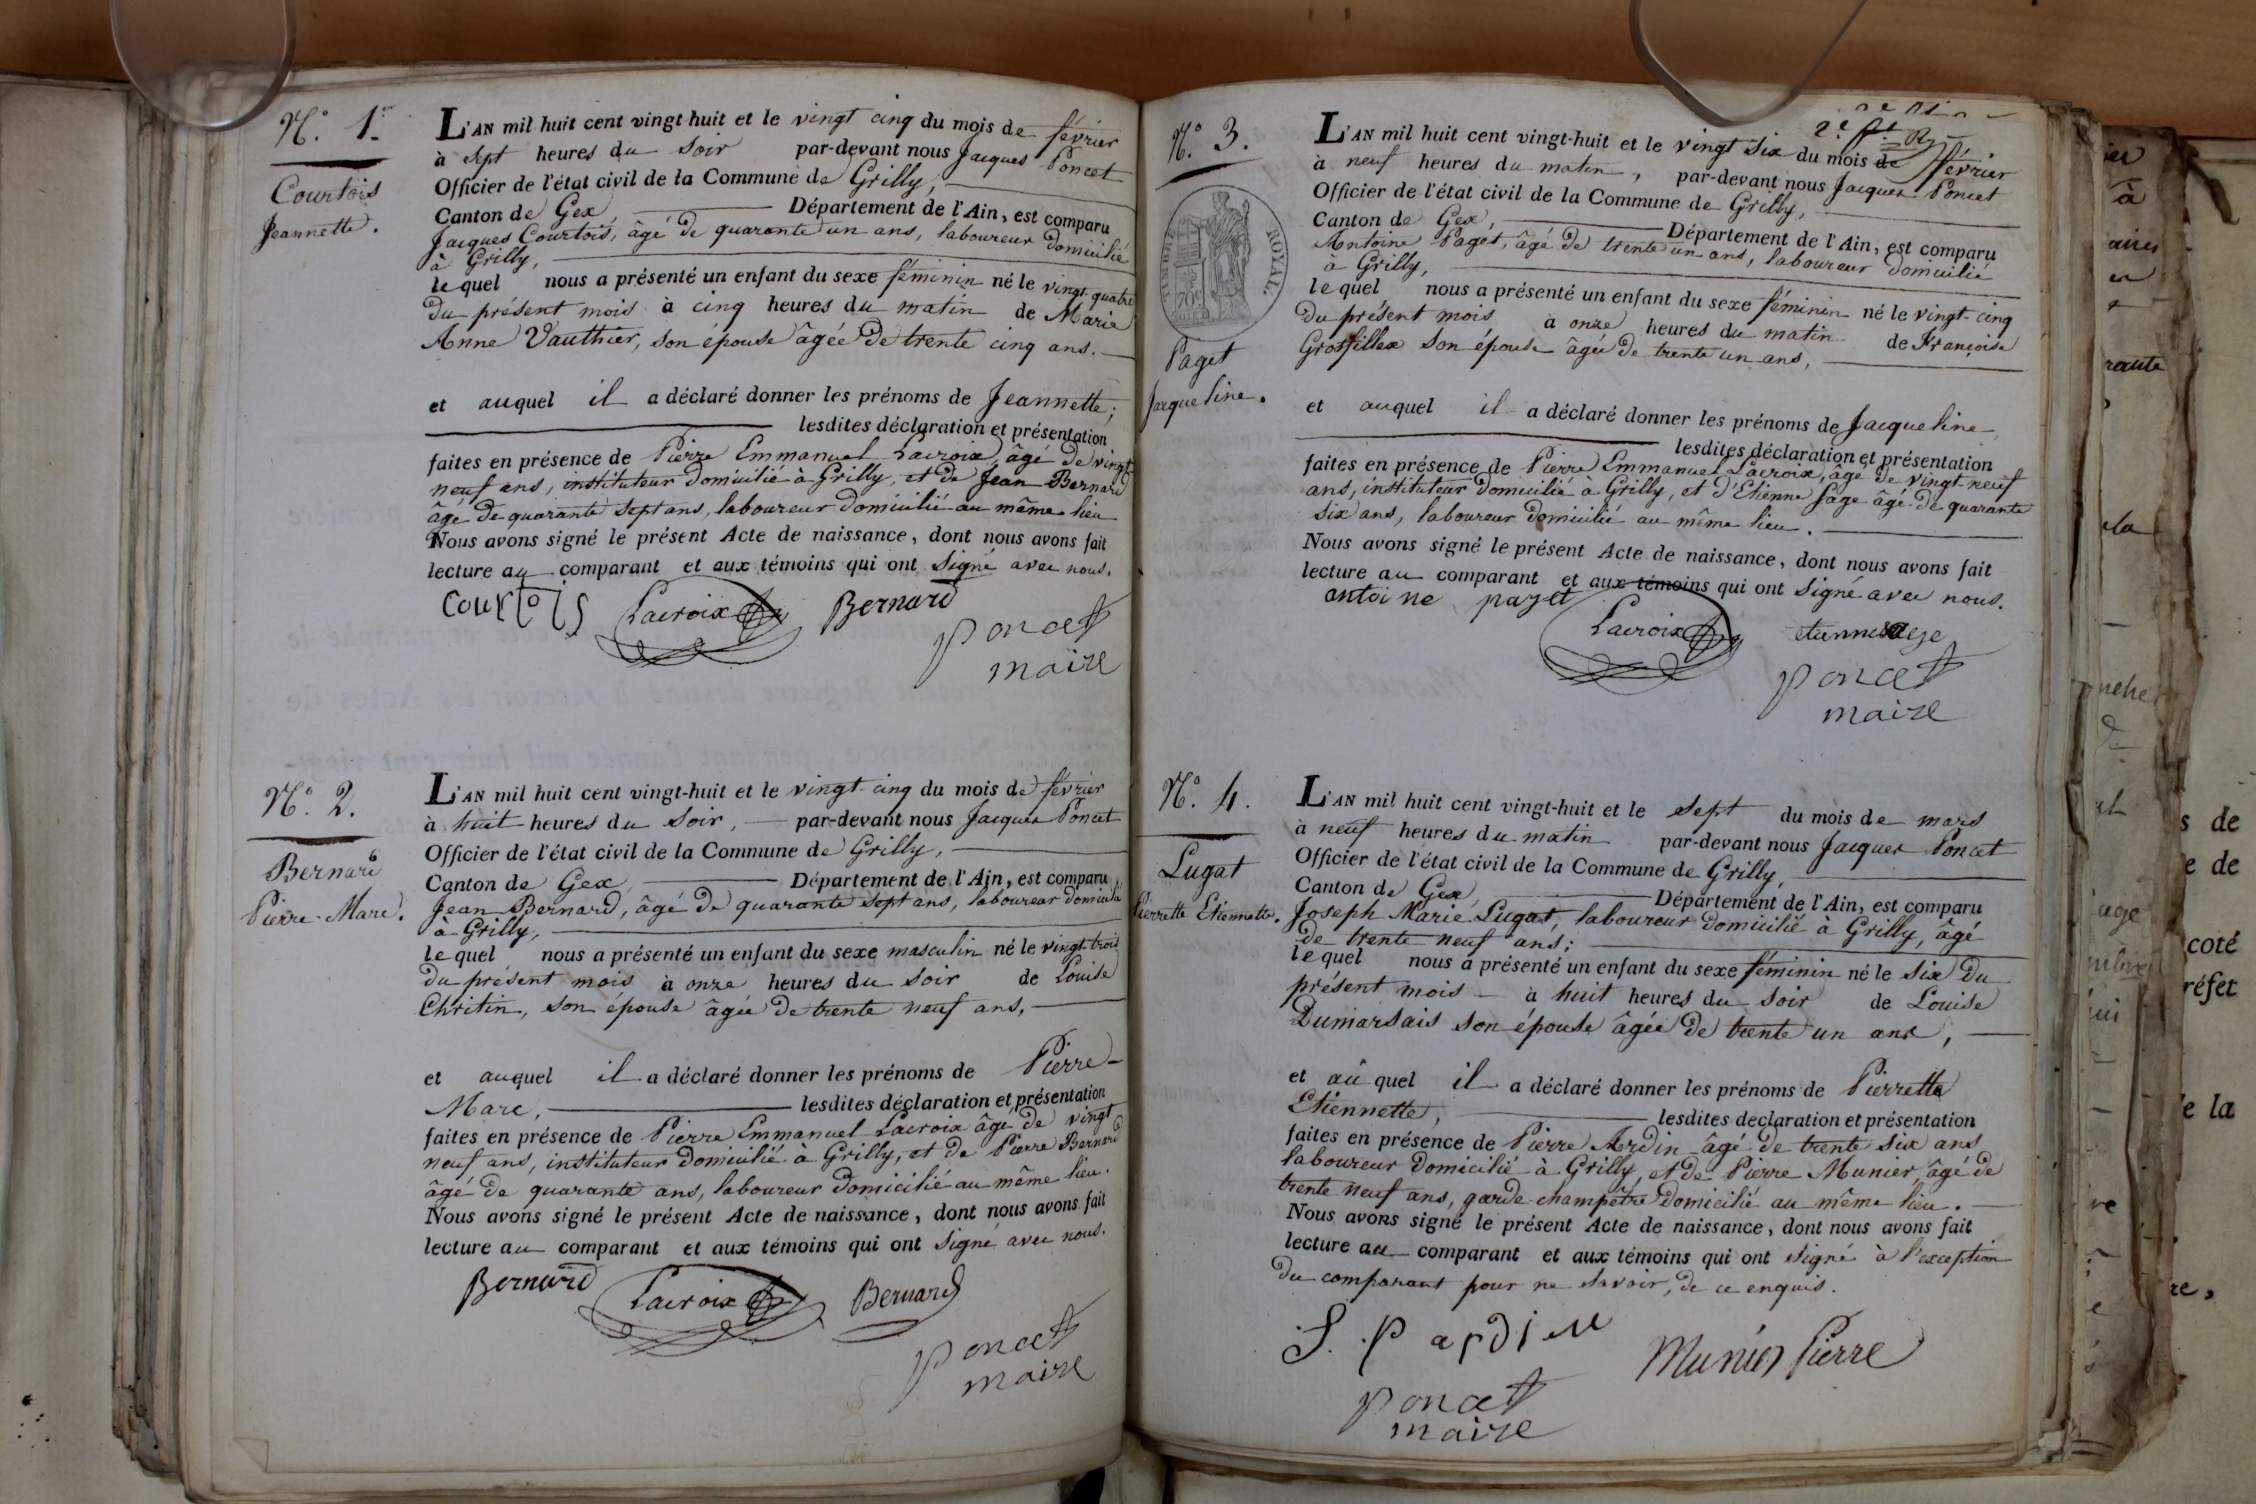 N.° 1.er
Courtois
Jeannette.
L'AN mil huit cent vingt-huit et le vingt cinq du mois de février
à sept heures du soir par-devant nous Jacques Poncet
Officier de l'état civil de la Commune de Grilly,
Canton de Gex, Département de l'Ain, est comparu
Jacques Courtois, âgé de quarante un ans, laboureur domicilié
à Grilly,
lequel nous a présenté un enfant du sexe féminin né le vingt-quatre
du présent mois à cinq heures du matin de Marie
Anne Vauthier, son épouse âgée de trente cinq ans.
et auquel il a déclaré donner les prénoms de Jeannette;
lesdites déclaration et présentation
faites en présence de Pierre Emmanuel Lacroix, âgé de vingt
neuf ans, instituteur domicilié à Grilly, et de Jean Bernard
âgé de quarante sept ans, laboureur domicilié au même lieu
Nous avons signé le présent Acte de naissance, dont nous avons fait
lecture au comparant et aux témoins qui ont signé avec nous.
Courtois Lacroix Bernard
Poncet
maire
N.° 2.
Bernard
Pierre-Marc.
L'AN mil huit cent vingt-huit et le vingt-cinq du mois de février
à huit heures du soir, par-devant nous Jacques Poncet
Officier de l'état civil de la Commune de Grilly,
Canton de Gex, Département de l'Ain, est comparu
Jean Bernard, âgé de quarante sept ans, laboureur domicilié
à Grilly,
lequel nous a présenté un enfant du sexe masculin né le vingt-trois
du présent mois à onze heures du soir de Louise
Chritin, son épouse âgée de trente neuf ans,
et auquel il a déclaré donner les prénoms de Pierre-
Marc, lesdites déclaration et présentation
faites en présence de Pierre Emmanuel Lacroix âgé de vingt
neuf ans, instituteur domicilié à Grilly, et de Pierre Bernard
âgé de quarante ans, laboureur domicilié au même lieu.
Nous avons signé le présent Acte de naissance, dont nous avons fait
lecture au comparant et aux témoins qui ont signé avec nous.
Bernard Lacroix Bernard
Poncet
maire
N.° 3.
TIMBRE ROYAL
70c
Paget
Jacqueline.
L'AN mil huit cent vingt-huit et le vingt six du mois de février
à neuf heures du matin, par-devant nous Jacques Poncet
Officier de l'état civil de la Commune de Grilly,
Canton de Gex, Département de l'Ain, est comparu
Antoine Paget, âgé de trente un ans, laboureur domicilié
à Grilly,
lequel nous a présenté un enfant du sexe féminin né le vingt-cinq
du présent mois à onze heures du matin de Françoise
Grosfillex son épouse âgée de trente un ans,
et auquel il a déclaré donner les prénoms de Jacqueline,
lesdites déclaration et présentation
faites en présence de Pierre Emmanuel Lacroix, âgé de vingt-neuf
ans, instituteur domicilié à Grilly, et d'Etienne Sage âgé de quarante
six ans, laboureur domicilié au même lieu.
Nous avons signé le présent Acte de naissance, dont nous avons fait
lecture au comparant et aux témoins qui ont signé avec nous.
antoine payet Lacroix
Poncet
maire
N.° 4.
Lugat
Pierrette Etiennette.
L'AN mil huit cent vingt-huit et le sept du mois de mars
à neuf heures du matin par-devant nous Jacques Poncet
Officier de l'état civil de la Commune de Grilly,
Canton de Gex, Département de l'Ain, est comparu
Joseph Marie Lugat, laboureur domicilié à Grilly, âgé
de trente neuf ans;
lequel nous a présenté un enfant du sexe féminin né le six du
présent mois à huit heures du soir de Louise
Dumarsais son épouse âgée de trente un ans,
et auquel il a déclaré donner les prénoms de Pierrette
Etiennette, lesdites declaration et présentation
faites en présence de Pierre Ardin âgé de trente six ans
laboureur domicilié à Grilly, et de Pierre Munier, âgé de
trente neuf ans, garde champêtre domicilié au même lieu.
Nous avons signé le présent Acte de naissance, dont nous avons fait
lecture au comparant et aux témoins qui ont signé à l'exception
du comparant pour ne savoir, de ce enquis.
Munier Pierre
Poncet
maire